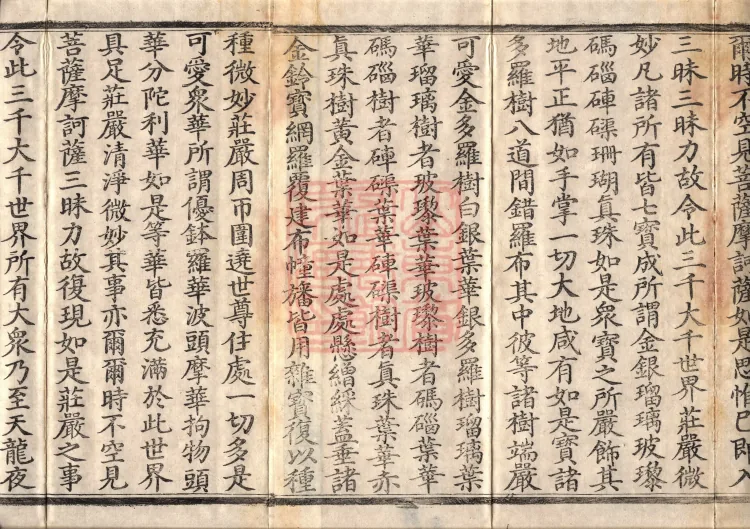 爾時不空見菩薩摩訶薩如是思惟已即入
三昧三昧力故令此三千大千世界莊嚴微
妙凡諸所有皆七寶成所謂金銀瑠璃玻瓈
碼碯硨磲珊瑚真珠如是衆寶之所嚴飾其
地平正猶如手掌一切大地咸有如是寶諸
多羅樹八道間錯羅布其中彼等諸樹端嚴
可愛金多羅樹白銀葉華銀多羅樹瑠璃葉
華瑠璃樹者玻瓈葉華玻瓈樹者碼碯葉華
碼碯樹者硨磲葉華硨磲樹者真珠葉華亦
真珠樹黃金葉華如是處處懸繒綵蓋垂諸
金鈴寶網羅覆建布幢旛皆用雜寶復以種
種微妙莊嚴周帀圍遶世尊住處一切多是
可愛衆華所謂優鉢羅華波頭摩華拘物頭
華分陀利華如是等華皆悉充滿於此世界
具足莊嚴清淨微妙其事亦爾爾時不空見
菩薩摩訶薩三昧力故復現如是莊嚴之事
令此三千大千世界所有大衆乃至天龍夜